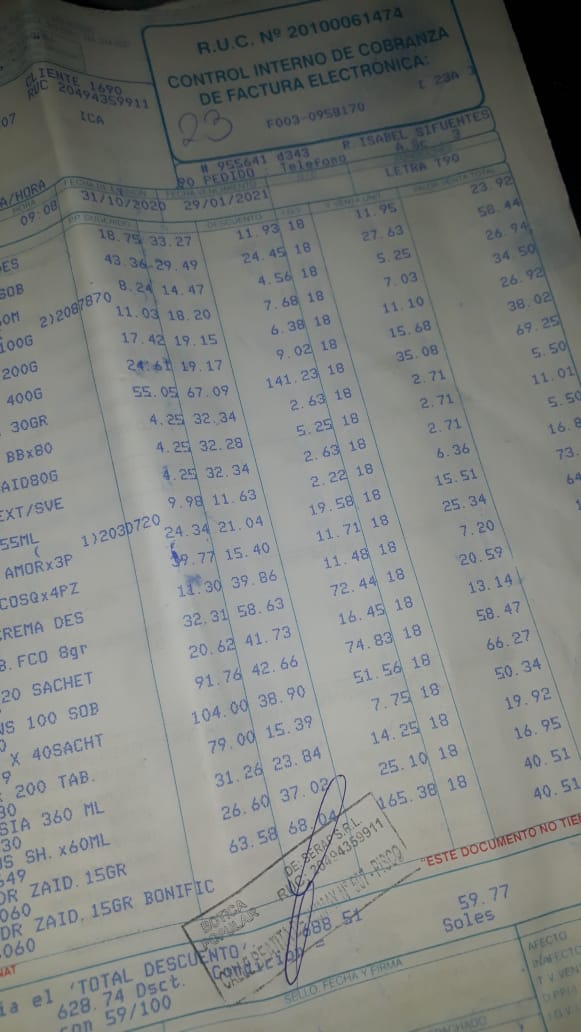 R.U.C. Nº 20100061474
CONTROL INTERNO DE COBRANZA
DE FACTURA ELECTRONICA:
23 F003-0958170
CLIENTE 1690
RUC 20494359911
07 ICA
# 955641 d343 R.ISABEL SIFUENTES
PO PEDIDO : Telefono
A/HORA FECHA VENCIMIENTO LETRA T90
09:08 31/10/2020 29/01/2021
DESCUENTO VALOR VENTA TOTAL
DES 18.75 33.27 11.93 18 11.95 23.92
SOB 43.36 29.49 24.45 18 27.63 58.44
8.24 14.47 4.56 18 5.25 26.94
100G 2)2087870 11.03 18.20 7.68 18 7.03 34.50
200G 17.42 19.15 6.38 18 11.10 26.92
400G 24.61 19.17 9.02 18 15.68 38.02
30GR 55.05 67.09 141.23 18 35.08 69.25
BBx80 4.25 32.34 2.63 18 2.71 5.50
AID80G 4.25 32.28 5.25 18 2.71 11.01
EXT/SVE 4.25 32.34 2.63 18 2.71 5.50
55ML 9.98 11.63 2.22 18 6.36 16.8
AMORx3P 1)2030720 24.34 21.04 19.58 18 15.51 73.
COSQx4PZ 39.77 15.40 11.71 18 25.34 64
CREMA DES 11.30 39.86 11.48 18 7.20
B.FCO 8gr 32.31 58.63 72.44 18 20.59
20 SACHET 20.62 41.73 16.45 18 13.14
WS 100 SOB 91.76 42.66 74.83 18 58.47
X 40SACHT 104.00 38.90 51.56 18 66.27
200 TAB. 79.00 15.39 7.75 18 50.34
SIA 360 ML 31.26 23.84 14.25 18 19.92
SH. x60ML 26.60 37.02 25.10 18 16.95
DR ZAID.15GR 63.58 68.04 165.38 18 40.51
DR ZAID.15GR BONIFIC 40.51
060
"ESTE DOCUMENTO NO TIEN
BOTICA
POPULAR
DE: SERAF S.R.L.
RUC: 20494359911
688.51 59.77
Soles
ia el 'TOTAL DESCUENTO'
628.74 Dsct. Condicion =
con 59/100
SELLO, FECHA Y FIRMA
AFECTO
INAFECTO